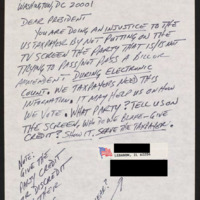 WASHINGTON, DC 20001
DEAR PRESIDENT
YOU ARE DOING AN INJUSTICE TO THE
US TAXPAYER BY NOT PUTTING ON THE
TV SCREEN THE PARTY THAT IS/IS NOT
TRYING TO PASS/NOT PASS A BILL OR
DURING ELECTRONIC
COUNT. WE TAXPAYERS NEED THIS
INFORMATION. IT MAY HELP US ON HOW
WE VOTE. WHAT PARTY? TELL US ON
THE SCREEN, WHO DO WE BLAME - GIVE
CREDIT? SHOW IT. SERVE THE TAXPAYER.
NOTE:
GIVE THE
PARTY
CREDIT
OR DISCREDIT
THEIR
LEBANON, IL